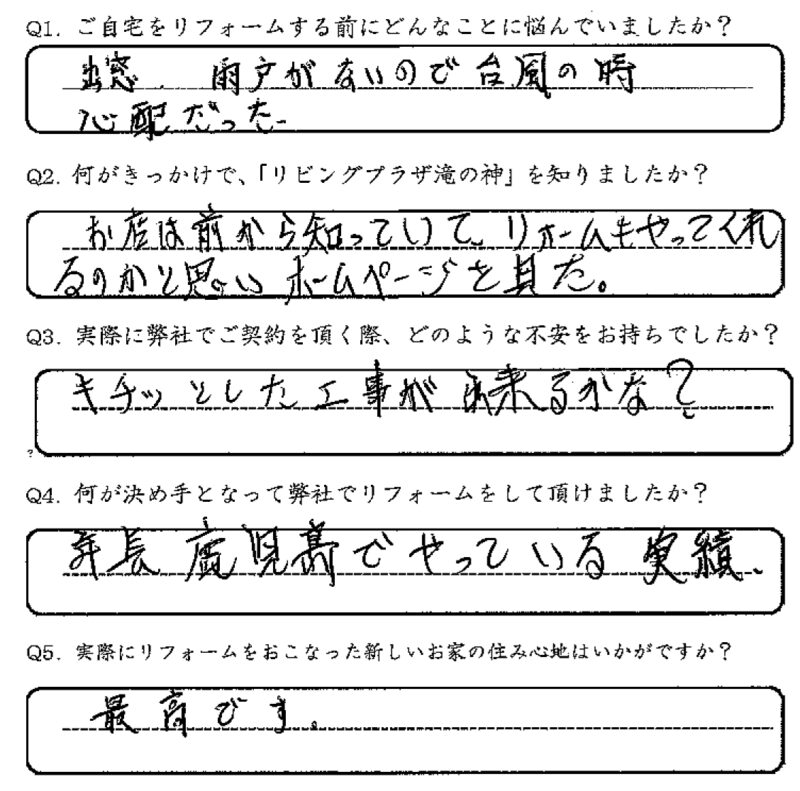 Q1. ご自宅をリフォームする前にどんなことに悩んでいましたか?
出窓. 雨戸がないので台風の時
心配だった.
Q2. 何がきっかけで、「リビングプラザ滝の神」を知りましたか?
お店は前から知っていて、リホームもやってくれ
るのかと思いホームページを見た。
Q3. 実際に弊社でご契約を頂く際、どのような不安をお持ちでしたか?
キチッとした工事が出来るかな?
?
Q4. 何が決め手となって弊社でリフォームをして頂けましたか?
年長鹿児島でやっている実績、
Q5. 実際にリフォームをおこなった新しいお家の住み心地はいかがですか?
最高です。